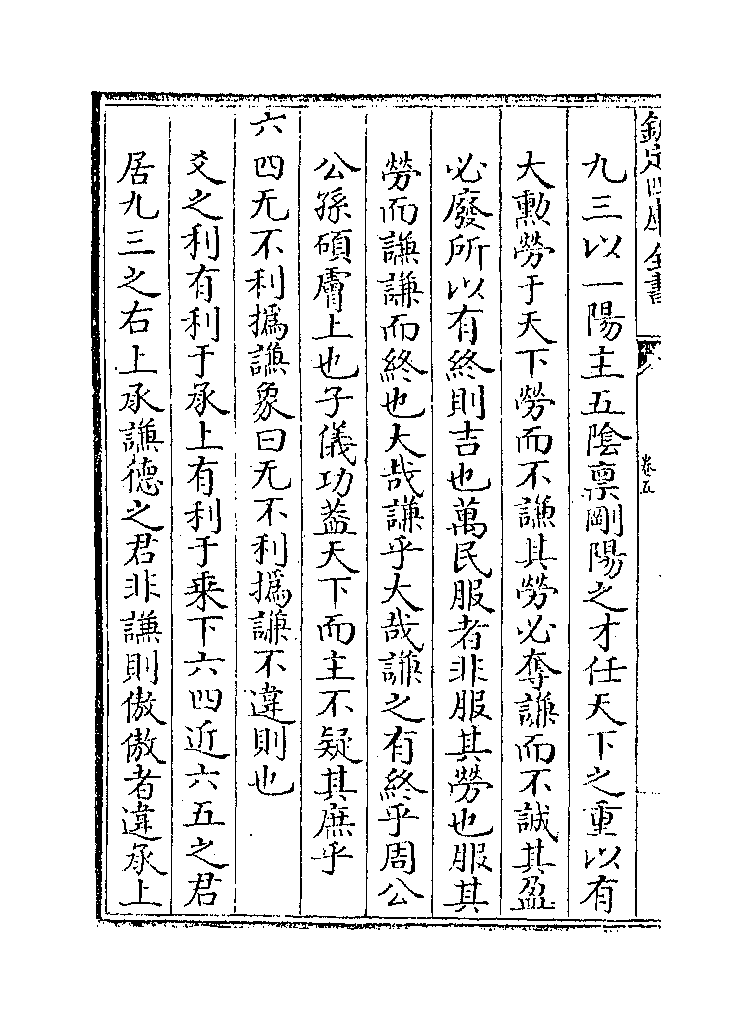 欽定四庫全書
卷五
九三以一陽主五陰禀剛陽之才任天下之重以有
大勲勞于天下勞而不謙其勞必奪謙而不誠其盈
必廢所以有終則吉也萬民服者非服其勞也服其
勞而謙謙而終也大哉謙乎大哉謙之有終乎周公
公孫碩膚上也子儀功葢天下而主不疑其庶乎
六四无不利撝謙象曰无不利撝謙不違則也
爻之利有利于承上有利于乗下六四近六五之君
居九三之右上承謙德之君非謙則傲傲者違承上